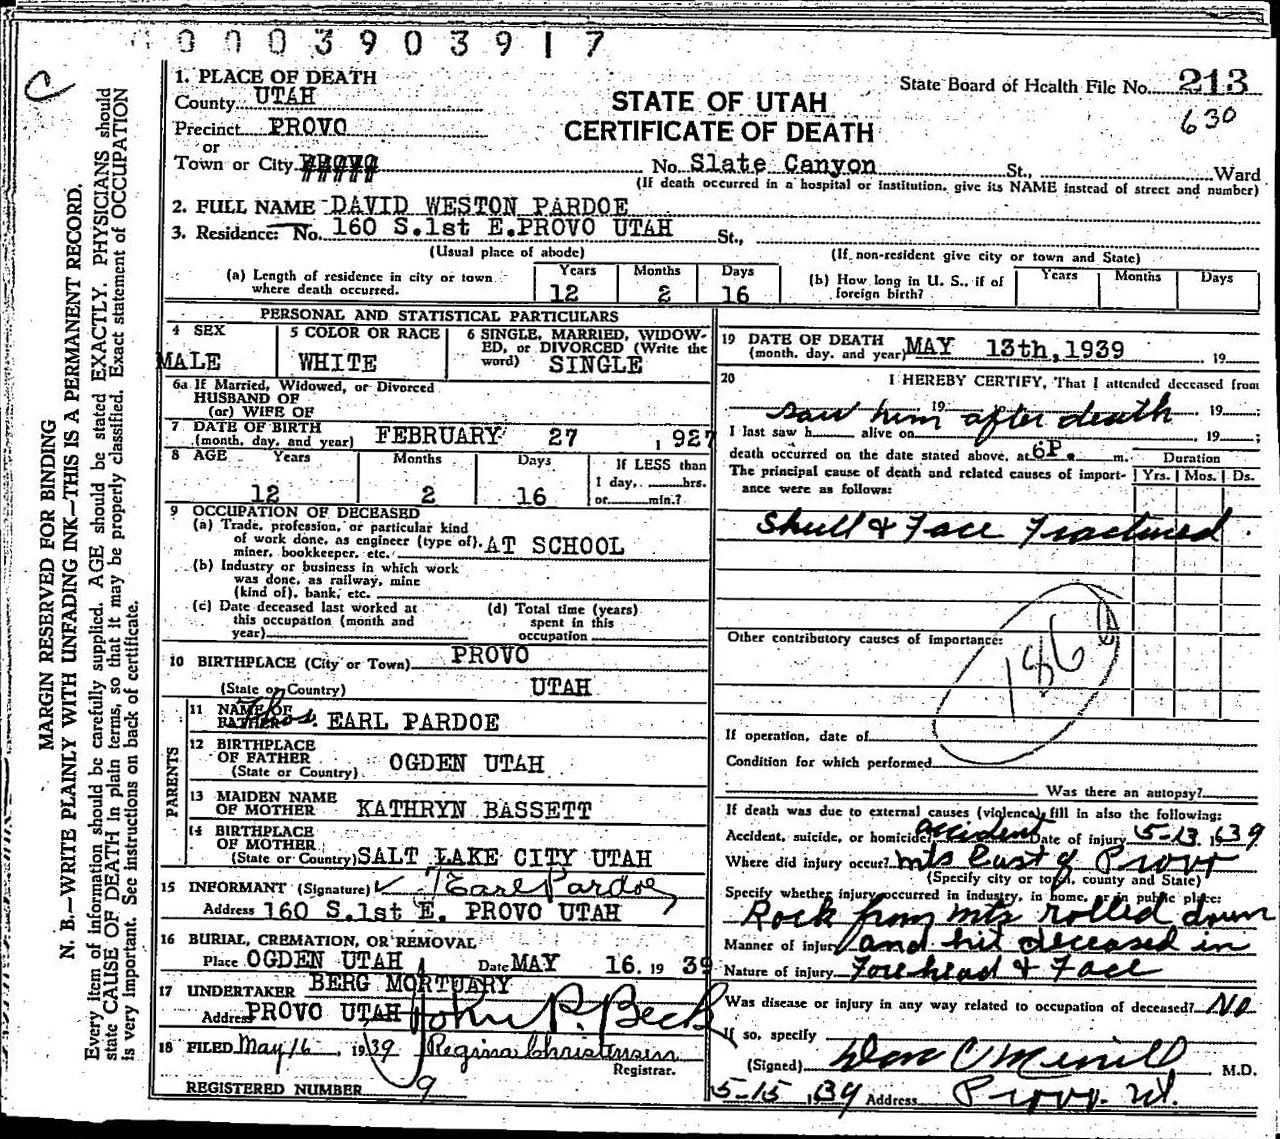 0 0 0 3 9 0 3 9 1 7
C
MARGIN RESERVED FOR BINDING
N. B.—WRITE PLAINLY WITH UNFADING INK—THIS IS A PERMANENT RECORD.
Every item of information should be carefully supplied. AGE should be stated EXACTLY. PHYSICIANS should
state CAUSE OF DEATH in plain terms, so that it may be properly classified. Exact statement of OCCUPATION
is very important. See instructions on back of certificate.
State Board of Health File No. 213
630
STATE OF UTAH
CERTIFICATE OF DEATH
1. PLACE OF DEATH
County UTAH
Precinct PROVO
or
Town or City PROVO No. Slate Canyon St., Ward
(If death occurred in a hospital or institution, give its NAME instead of street and number)
2. FULL NAME DAVID WESTON PARDOE
3. Residence: No. 160 S.1st E.PROVO UTAH St.,
(Usual place of abode) (If non-resident give city or town and State)
(a) Length of residence in city or town where death occurred. Years 12 Months 2 Days 16
(b) How long in U. S., if of foreign birth? Years Months Days
PERSONAL AND STATISTICAL PARTICULARS
4 SEX MALE
5 COLOR OR RACE WHITE
6 SINGLE, MARRIED, WIDOWED, or DIVORCED (Write the word) SINGLE
6a If Married, Widowed, or Divorced
HUSBAND OF
(or) WIFE OF
7 DATE OF BIRTH
(month, day, and year) FEBRUARY 27, 1927
8 AGE Years 12 Months 2 Days 16 If LESS than 1 day, hrs. or min.?
9 OCCUPATION OF DECEASED
(a) Trade, profession, or particular kind
of work done, as engineer (type of), AT SCHOOL
miner, bookkeeper, etc.
(b) Industry or business in which work
was done, as railway, mine
(kind of), bank, etc.
(c) Date deceased last worked at
this occupation (month and
year)
(d) Total time (years)
spent in this
occupation
10 BIRTHPLACE (City or Town) PROVO
(State or Country) UTAH
PARENTS
11 NAME OF FATHER Thos. EARL PARDOE
12 BIRTHPLACE
OF FATHER OGDEN UTAH
(State or Country)
13 MAIDEN NAME
OF MOTHER KATHRYN BASSETT
14 BIRTHPLACE
OF MOTHER
(State or Country) SALT LAKE CITY UTAH
15 INFORMANT (Signature) T Earl Pardoe
Address 160 S.1st E. PROVO UTAH
16 BURIAL, CREMATION, OR REMOVAL
Place OGDEN UTAH Date MAY 16. 19 39
17 UNDERTAKER BERG MORTUARY
Address PROVO UTAH John P. Beck
18 FILED May 16, 1939 Regina Christensen
Registrar.
REGISTERED NUMBER 9
19 DATE OF DEATH
(month, day, and year) MAY 13th, 1939 19
20 I HEREBY CERTIFY, That I attended deceased from
19 saw him after death 19 ;
I last saw h alive on 19 ;
death occurred on the date stated above, at 6P. m.
Duration
The principal cause of death and related causes of importance were as follows: Yrs. Mos. Ds.
Skull & Face Fractured
Other contributory causes of importance:
186
If operation, date of
Condition for which performed
Was there an autopsy?
If death was due to external causes (violence) fill in also the following:
Accident, suicide, or homicide? accident Date of injury 5-13, 1939
Where did injury occur? mts East of Provo
(Specify city or town, county and State)
Specify whether injury occurred in industry, in home, or in public place:
Rock from mts rolled down
Manner of injury and hit deceased in
Nature of injury Forehead & Face
Was disease or injury in any way related to occupation of deceased? No
If so, specify
(Signed) Dan C Merrill M.D.
5-15, 39 Address Provo. Ut.